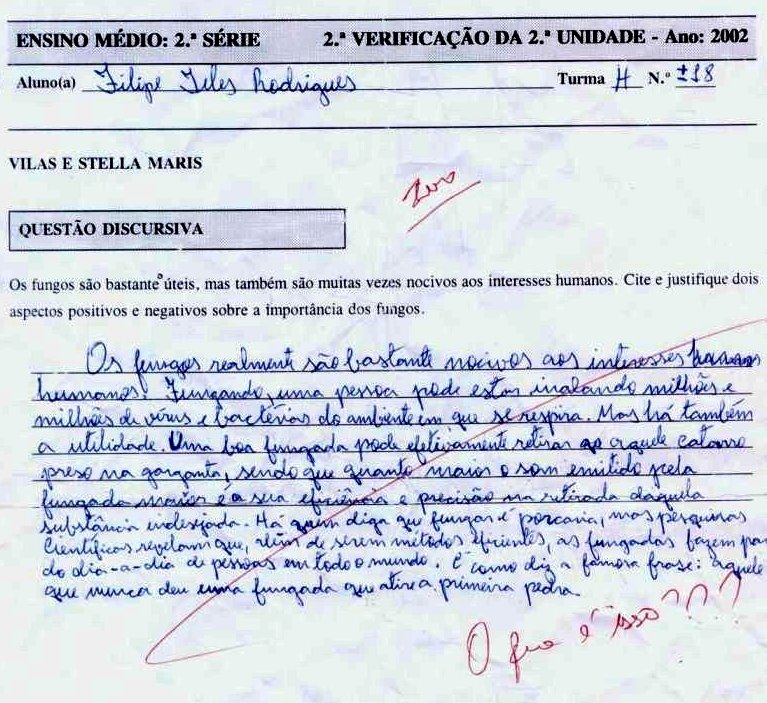 ENSINO MÉDIO: 2.ª SÉRIE 2.ª VERIFICAÇÃO DA 2.ª UNIDADE - Ano: 2002
Aluno(a) Filipe Teles Rodrigues Turma H N.º ±18
VILAS E STELLA MARIS
Zero
QUESTÃO DISCURSIVA
Os fungos são bastante úteis, mas também são muitas vezes nocivos aos interesses humanos. Cite e justifique dois
aspectos positivos e negativos sobre a importância dos fungos.
Os fungos realmente são bastante nocivos aos interesses
humanos. Fungando, uma pessoa pode estar inalando milhões e
milhões de vírus e bactérias do ambiente em que se respira. Mas há também
a utilidade. Uma boa fungada pode efetivamente retirar aquele catarro
preso na garganta, sendo que quanto maior o som emitido pela
fungada maior é a sua eficiência e precisão na retirada daquela
substância indesejada. Há quem diga que fungar é porcaria, mas pesquisas
científicas revelam que, além de serem métodos eficientes, as fungadas fazem par
do dia-a-dia de pessoas em todo o mundo. É como diz a famosa frase: aquele
que nunca deu uma fungada que atire a primeira pedra.
O que é isso???